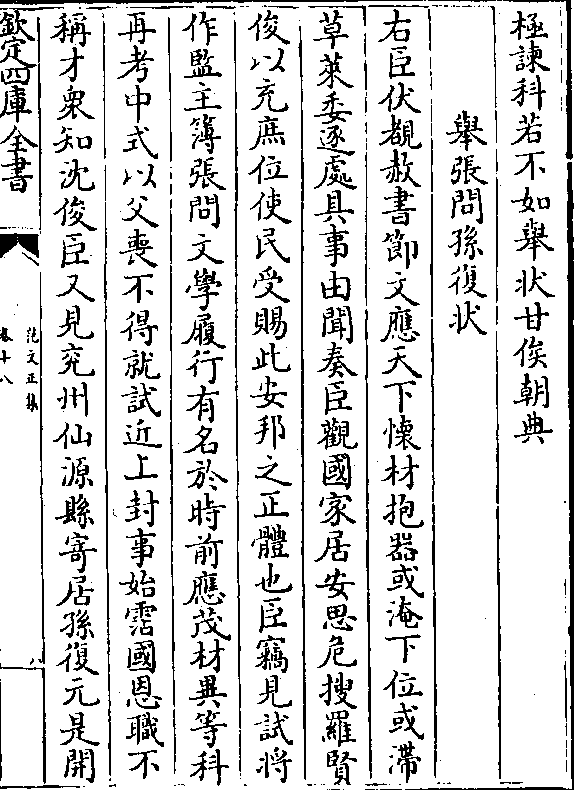 極諫科若不如舉狀甘俟朝典
舉張問孫復狀
右臣伏覩赦書節文應天下懷材抱器或淹下位或滯
草萊委逐處具事由聞奏臣觀國家居安思危搜羅賢
俊以充庶位使民受賜此安邦之正體也臣竊見試將
作監主簿張問文學履行有名於時前應茂材異等科
再考中式以父喪不得就試近上封事始霑國恩職不
稱才衆知沈俊臣又見兖州仙源縣寄居孫復元是開
欽定四庫全書
范文正集
卷十八
八